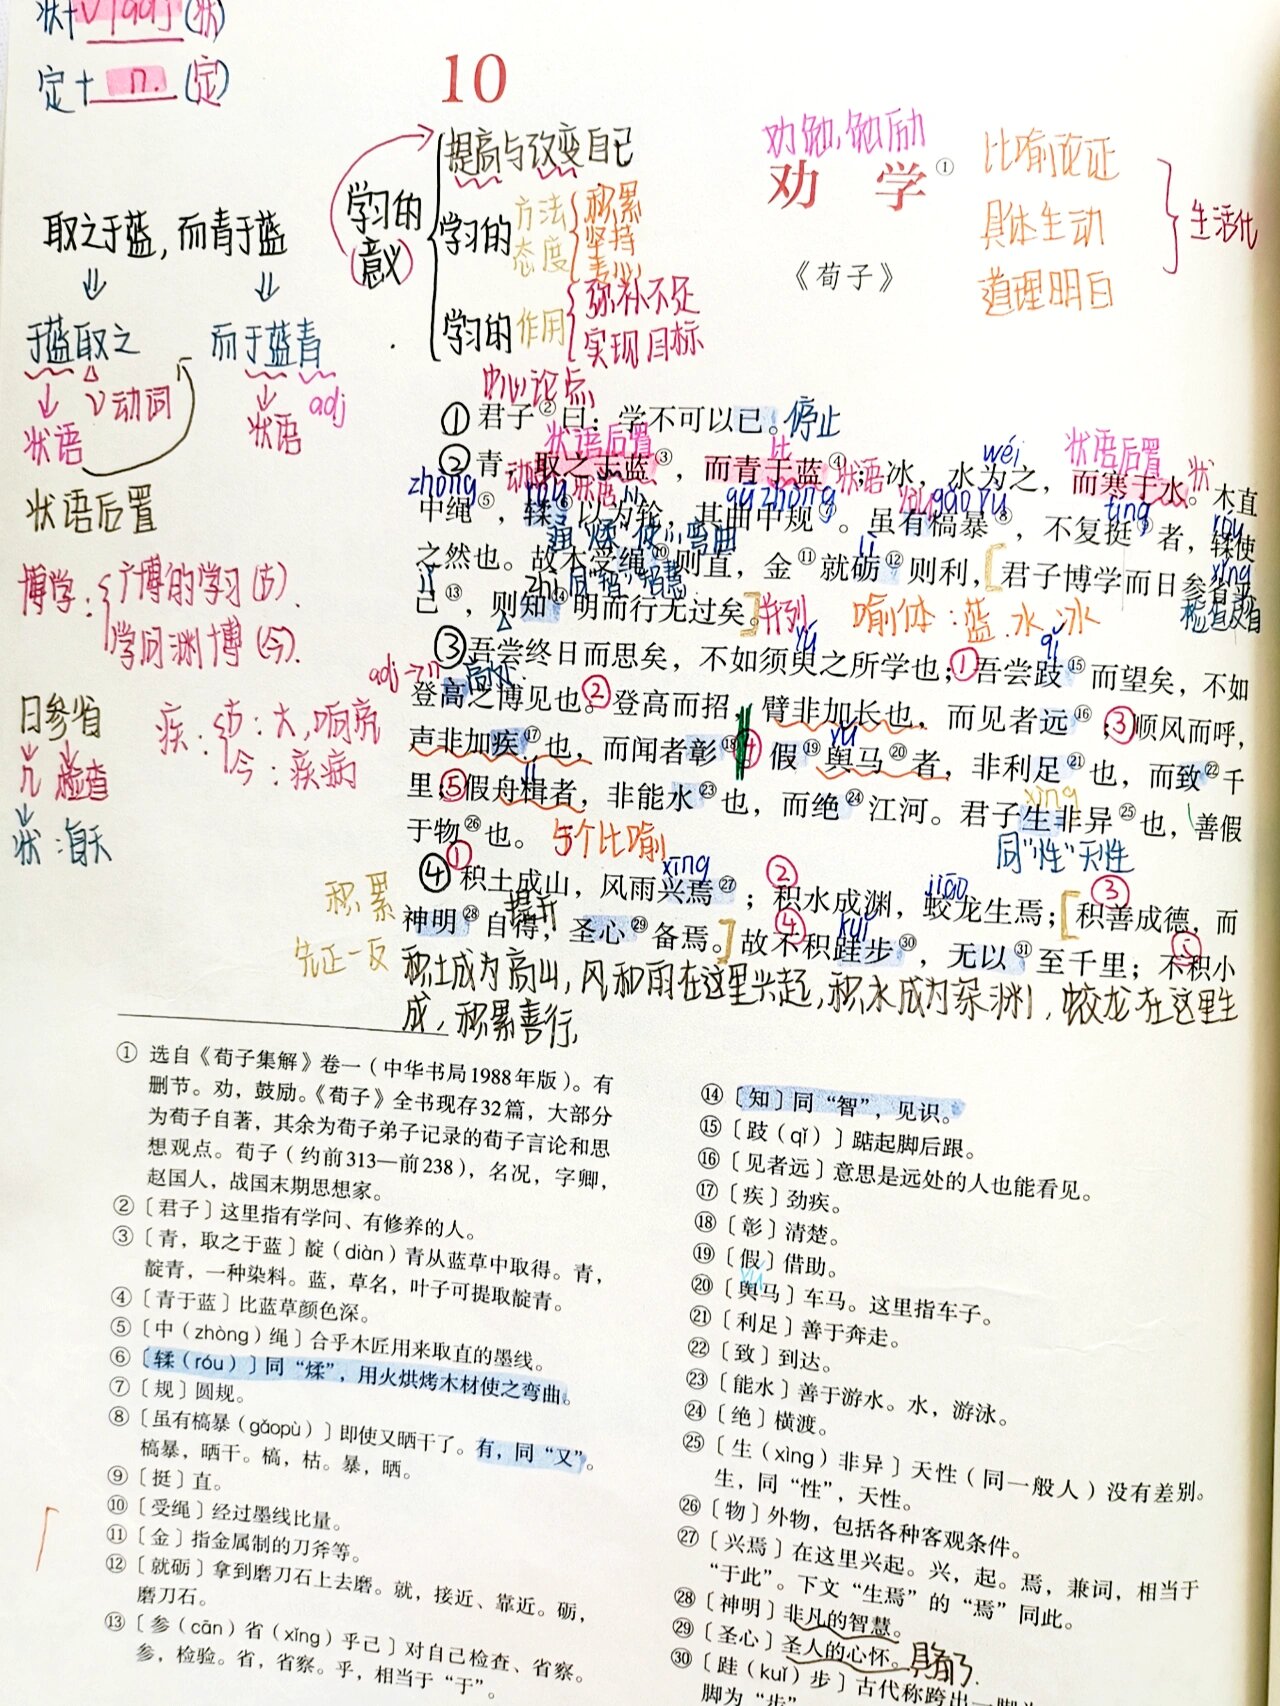 状+V/adj(状)
定+n.(定)
10
劝勉,勉励
劝 学①
《荀子》
比喻论证
具体生动
道理明白
生活化
学习的(意义)
提高与改变自己
学习的
方法
态度
积累
坚持
学习的作用
弥补不足
实现目标
取之于蓝,而青于蓝
于蓝取之
而于蓝青
V动词
adj
状语
状语
状语后置
博学:
广博的学习(古).
学问渊博(今).
日参省
检查
状:每天
疾:
古:大,响亮
今:疾病
中心论点
①君子②曰:学不可以已。停止
状语后置
比
wéi
状语后置
②青,取之于蓝③,而青于蓝④;冰,水为之,而寒于水。木直
动
状语
状语
状
zhòng
róu
qū zhòng
gǎo pù
tǐng
róu
中绳⑤,𫐓⑥以为轮,其曲中规⑦。虽有槁暴⑧,不复挺⑨者,𫐓使
弯曲
之然也。故木受绳⑩则直,金⑪就砺⑫则利,[君子博学而日参省乎
lì
xǐng
zhì 同"智" 智慧
己⑬,则知⑭明而行无过矣。]并列
喻体:蓝.水.冰
yú
qǐ
③吾尝终日而思矣,不如须臾之所学也;①吾尝跂⑮而望矣,不如
adj→n
高处
登高之博见也。②登高而招,臂非加长也,而见者远⑯;③顺风而呼,
yú
声非加疾⑰也,而闻者彰⑱。④假⑲舆马⑳者,非利足㉑也,而致㉒千
jí
xìng
里;⑤假舟楫者,非能水㉓也,而绝㉔江河。君子生非异㉕也,善假
于物㉖也。
5个比喻
同"性"天性
xīng
jiāo
④①积土成山,风雨兴焉㉗;②积水成渊,蛟龙生焉;[③积善成德,而
积累
提升
kuǐ
神明㉘自得,圣心㉙备焉。]故④不积跬步㉚,无以㉛至千里;⑤不积小
先正一反
积土成为高山,风和雨在这里兴起,积水成为深渊,蛟龙在这里生
成,积累善行,
① 选自《荀子集解》卷一(中华书局1988年版)。有
删节。劝,鼓励。《荀子》全书现存32篇,大部分
为荀子自著,其余为荀子弟子记录的荀子言论和思
想观点。荀子(约前313—前238),名况,字卿,
赵国人,战国末期思想家。
② 〔君子〕这里指有学问、有修养的人。
③ 〔青,取之于蓝〕靛(diàn)青从蓝草中取得。青,
靛青,一种染料。蓝,草名,叶子可提取靛青。
④ 〔青于蓝〕比蓝草颜色深。
⑤ 〔中(zhòng)绳〕合乎木匠用来取直的墨线。
⑥ 〔𫐓(róu)〕同“煣”,用火烘烤木材使之弯曲。
⑦ 〔规〕圆规。
⑧ 〔虽有槁暴(gǎopù)〕即使又晒干了。有,同“又”。
槁暴,晒干。槁,枯。暴,晒。
⑨ 〔挺〕直。
⑩ 〔受绳〕经过墨线比量。
⑪ 〔金〕指金属制的刀斧等。
⑫ 〔就砺〕拿到磨刀石上去磨。就,接近、靠近。砺,
磨刀石。
⑬ 〔参(cān)省(xǐng)乎己〕对自己检查、省察。
参,检验。省,省察。乎,相当于“于”。
⑭ 〔知〕同“智”,见识。
⑮ 〔跂(qǐ)〕踮起脚后跟。
⑯ 〔见者远〕意思是远处的人也能看见。
⑰ 〔疾〕劲疾。
⑱ 〔彰〕清楚。
⑲ 〔假〕借助。
yú
⑳ 〔舆马〕车马。这里指车子。
㉑ 〔利足〕善于奔走。
㉒ 〔致〕到达。
㉓ 〔能水〕善于游水。水,游泳。
㉔ 〔绝〕横渡。
㉕ 〔生(xìng)非异〕天性(同一般人)没有差别。
生,同“性”,天性。
㉖ 〔物〕外物,包括各种客观条件。
㉗ 〔兴焉〕在这里兴起。兴,起。焉,兼词,相当于
“于此”。下文“生焉”的“焉”同此。
㉘ 〔神明〕非凡的智慧。
㉙ 〔圣心〕圣人的心怀。具备了.
㉚ 〔跬(kuǐ)步〕古代称跨出一脚为
脚为“步”